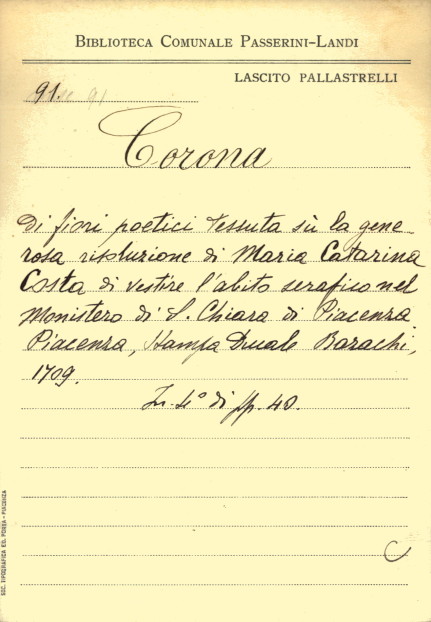 BIBLIOTECA COMUNALE PASSERINI-LANDI
LASCITO PALLASTRELLI
91.
Corona
Di fiori poetici tessuta sù la gene
rosa risoluzione di Maria Catarina
Costa di vestire l'abito serafico nel
Monistero di S. Chiara di Piacenza
Piacenza, Stampa Ducale Bazachi,
1709.
In 4° di pp. 40.
C
SOC. TIPOGRAFICA ED. PORTA - PIACENZA